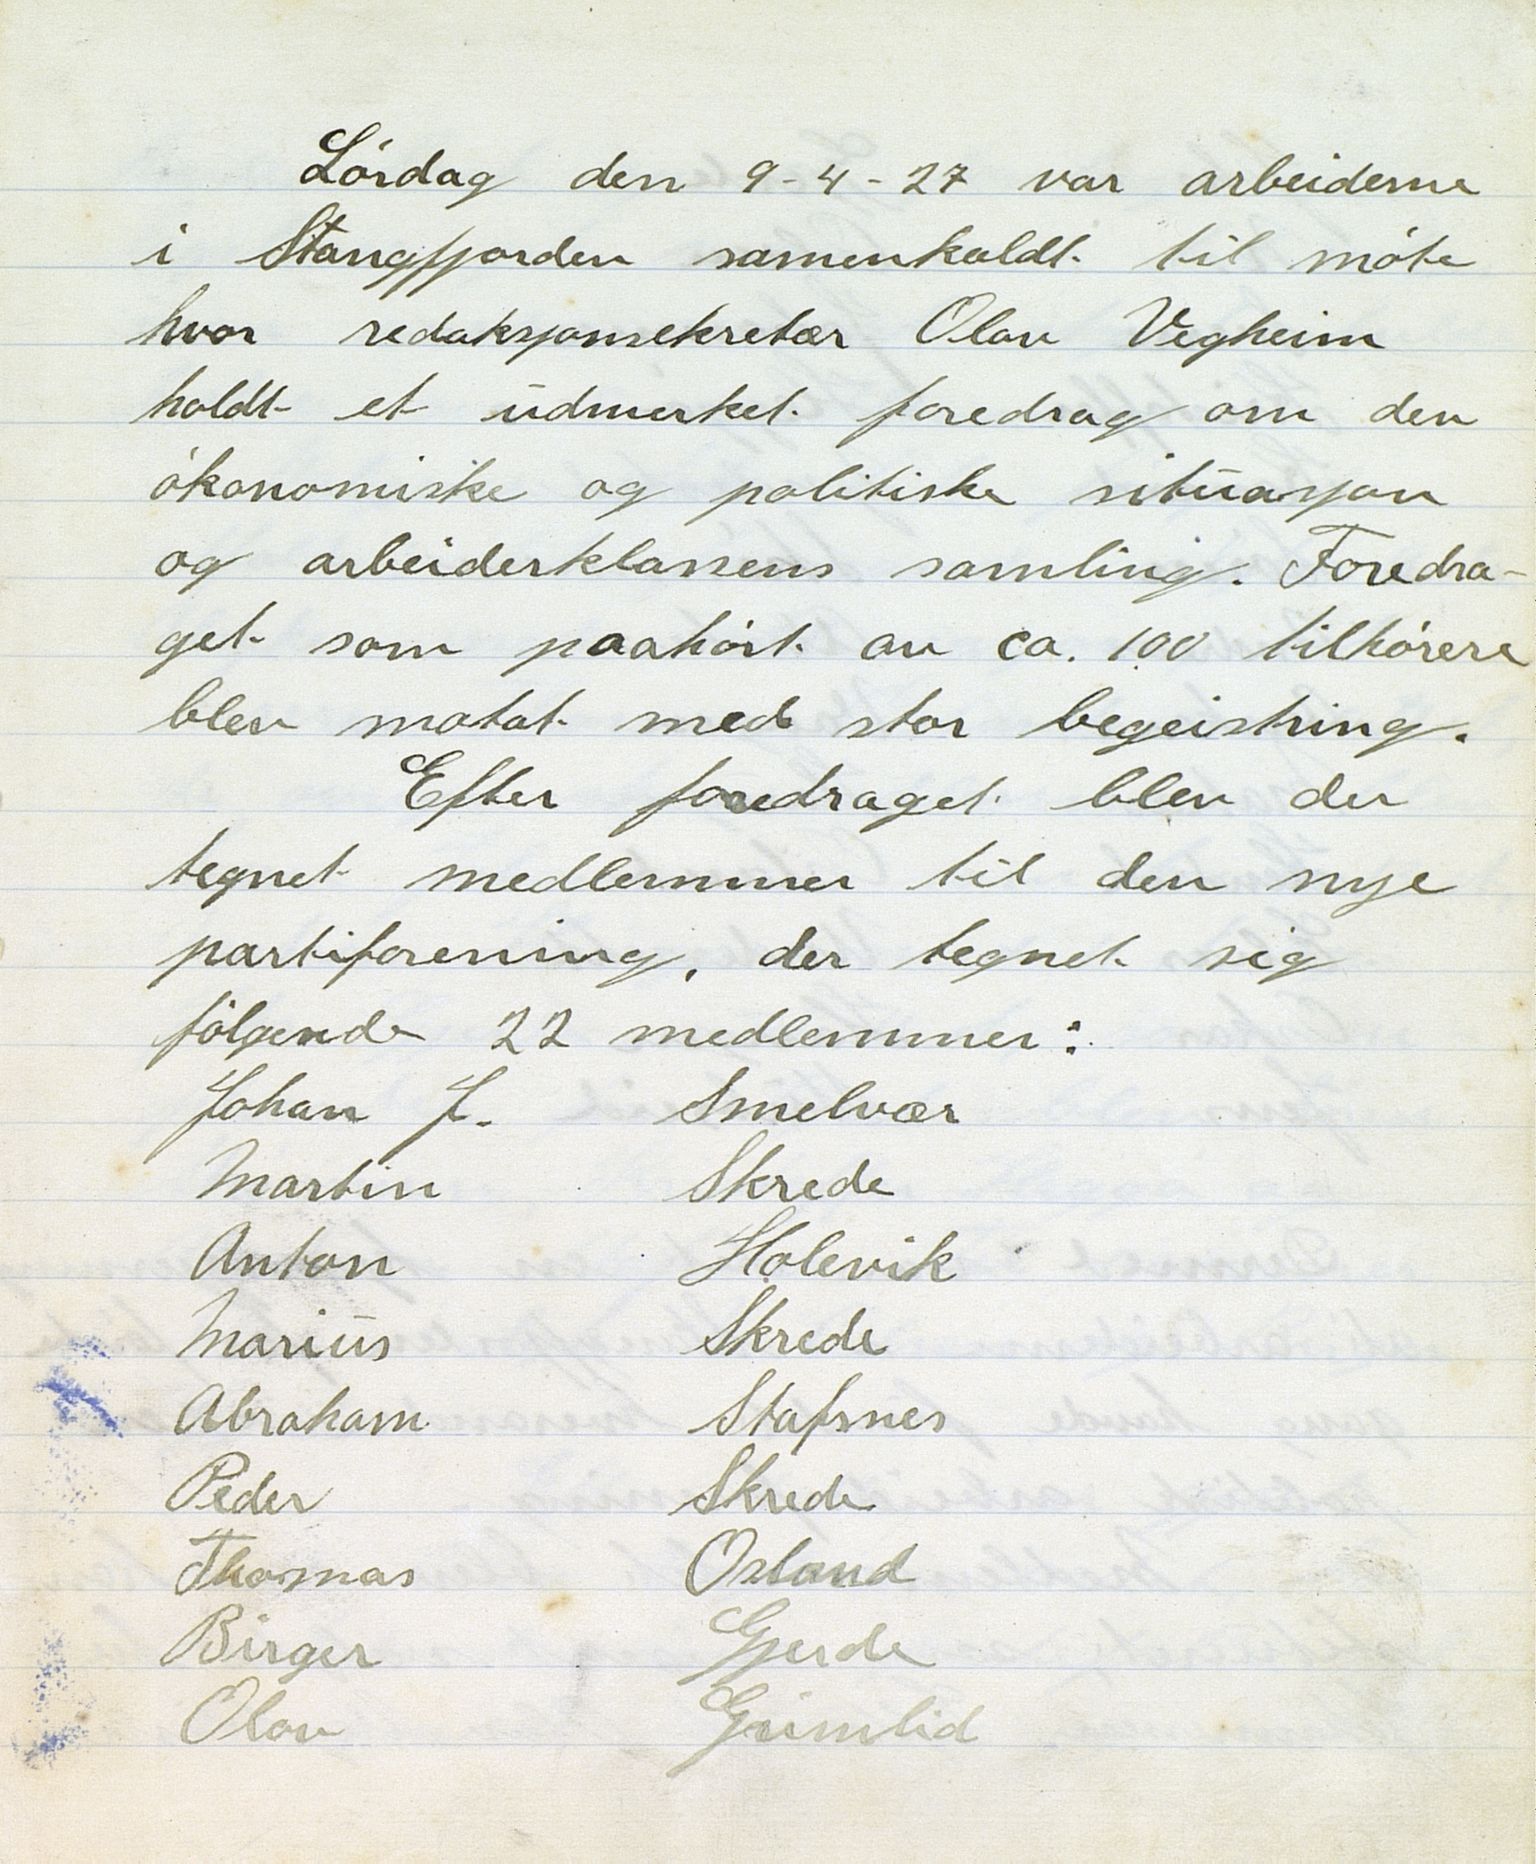 Lördag den 9-4-27 var arbeiderne
i Stangfjorden samenkaldt til möte
hvor redaksjonsekretær Olav Vegheim
holdt et udmerket foredrag om den
ökonomiske og politiske situasjon
og arbeiderklassens samling. Foredra-
get som paahört av ca. 100 tilhörere
blev motat med stor begeistring.
Efter foredraget blev der
tegnet medlemmer til den nye
partiforening, der tegnet sig
fölgende 22 medlemmer:
Johan J. Smelvær
Martin Skrede
Anton Holevik
Marius Skrede
Abraham Stafsnes
Peder Skrede
Thomas Osland
Birger Gjerde
Olav Grimlid